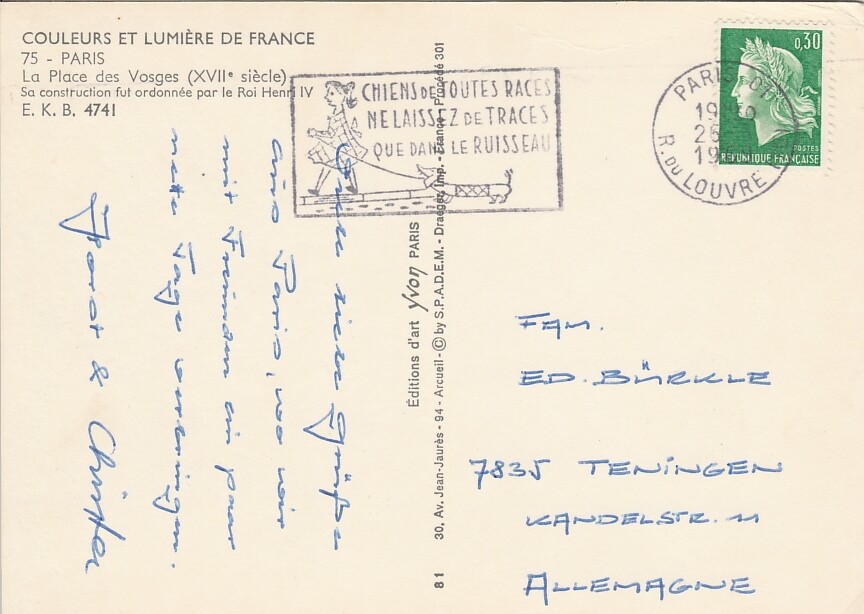 COULEURS ET LUMIÈRE DE FRANCE
75 - PARIS
La Place des Vosges (XVIIᵉ siècle)
Sa construction fut ordonnée par le Roi Henri IV
E. K. B. 4741
CHIENS DE TOUTES RACES
NE LAISSEZ DE TRACES
QUE DANS LE RUISSEAU
PARIS
19
26
19
R. DU LOUVRE
0,30
POSTES
REPUBLIQUE FRANÇAISE
liebe Grüße
aus Paris, wo wir
mit Freunden ein paar
nette Tage verbringen.
Horst & Christa
Éditions d'art yvon PARIS
81 30, Av. Jean-Jaurès - 94 - Arcueil - © by S.P.A.D.E.M. - Draeger, Imp. - France - Procédé 301
FAM.
ED. BÜRKLE
7835 TENINGEN
KANDELSTR. 11
ALLEMAGNE